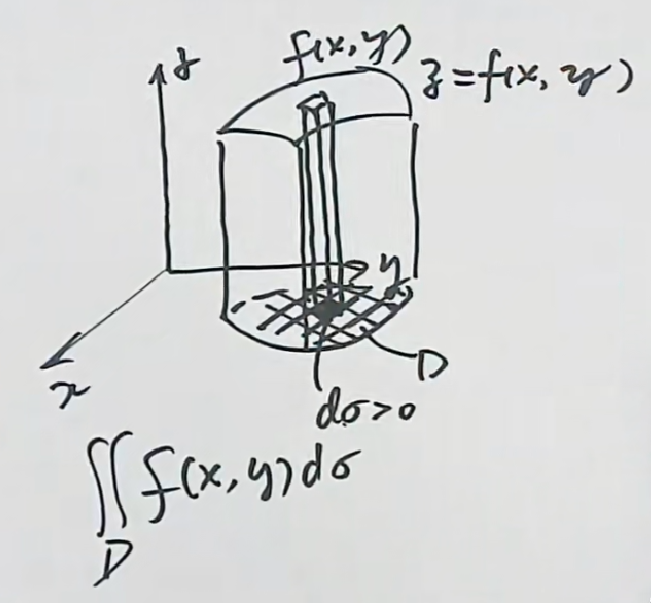 f(x, y)
z = f(x, y)
z
y
x
D
dσ > 0
∬_D f(x, y) dσ